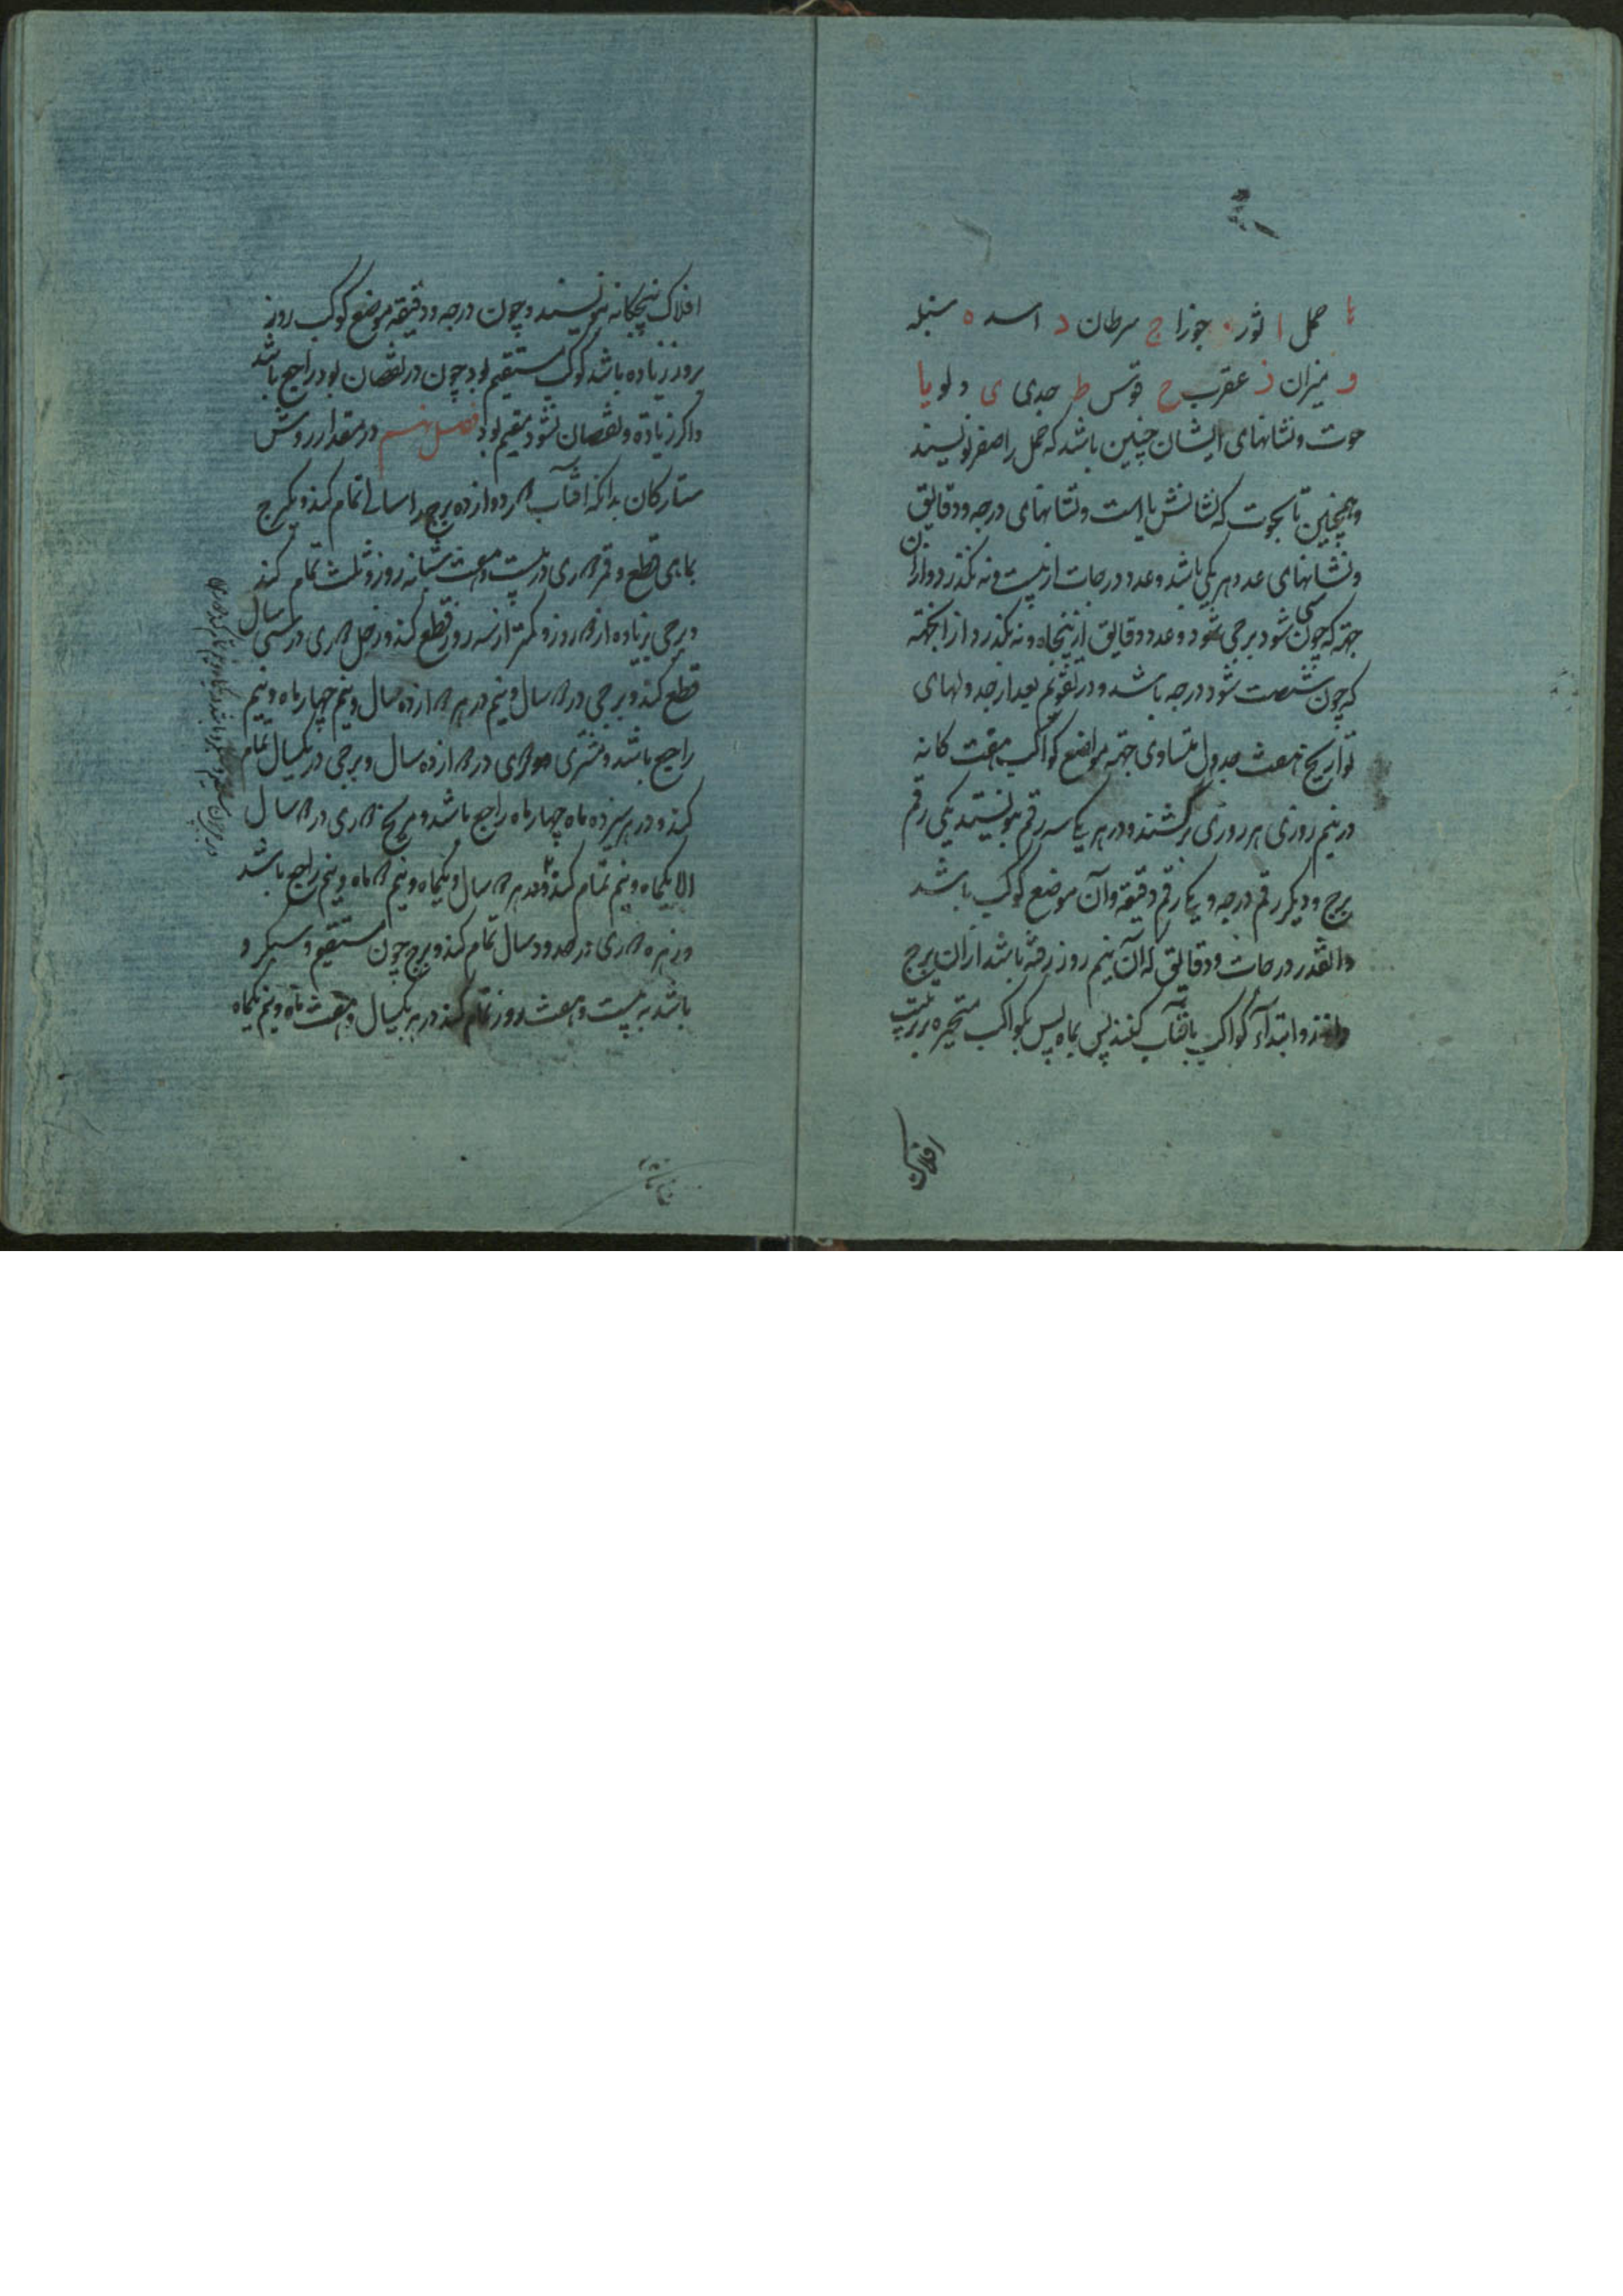 حمل ا ثور جوزا ج سرطان د اسد ه سنبله
و میزان ز عقرب ح قوس ط جدی ی دلو یا
حوت و نشانهای ایشان چنین باشد که حمل را صفر نویسند
و همچنین تا بحوت که نشانش یا است و نشانهای درجه و دقایق
و نشانهای عدد هر یکی باشد و عدد درجات از بیست و نه نکذرد و از این
جهة که چون سی شود برجی شود و عدد دقایق از پنجاه و نه نکذرد از انجهة
که چون شصت شود درجه باشد و در تقویم بعد از جدولهای
تواریخ هفت جدول متساوی جهة مواضع کواکب هفت کانه
در نیم روزی هر روزی برکشند و در هر یک سه رقم نویسند یکی رقم
برج و دیکر رقم درجه و یکی رقم دقیقه و آن موضع کوکب باشد
دانقدر درجات و دقایق که آن نیم روز رفته باشد از آن برج
و ابتدآء کواکب بآفتاب کنند پس بماه پس بکواکب متحیره بر ترتیب
افلاک
افلاک پنجکانه نویسند و چون درجه و دقیقه موضع کوکب روز
بروز زیاده باشد کوکب مستقیم بود چون در نقصان بود راجع باشد
واکر زیاده و نقصان نشود مقیم بود فصل در مقدار روش
ستارکان بدانکه آفتاب دوازده برج را بسالی تمام کند و یک برج
بماهی قطع و قمر دوری در بیست و هفت شبانه روز و ثلث تمام کند
و برجی زیاده از دو روز و کمتر از سه روز قطع کند و زحل دوری در سی سال
قطع کند و برجی در دو سال و نیم در هر دوازده سال و نیم چهار ماه و نیم
راجع باشد و مشتری دوری در دوازده سال و برجی در یکسال تمام
کند و در هر سیزده ماه چهار ماه راجع باشد و مریخ دوری در دو سال
الا یکماه و نیم تمام کند و در هر دو سال و یکماه و نیم دو ماه و نیم راجع باشد
و زهره دوری در حدود سال تمام کند و برج چون مستقیم و سبکرو
باشد به بیست و هفت روز تمام کند در هر یکسال و هفت ماه و نیم یکماه